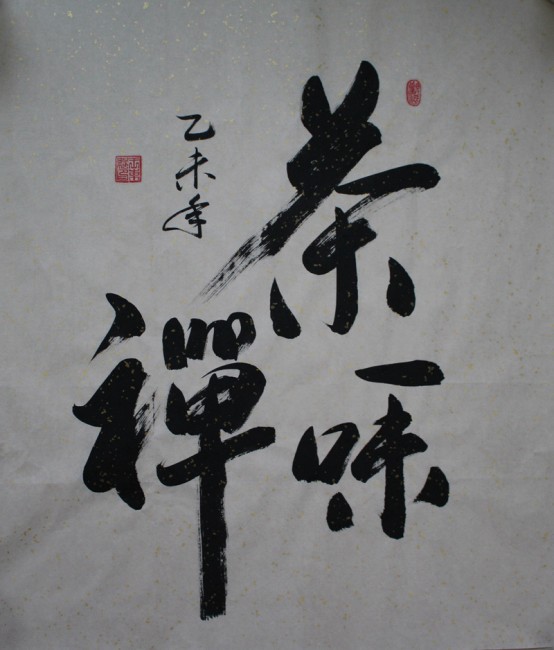 茶禪一味
乙未年